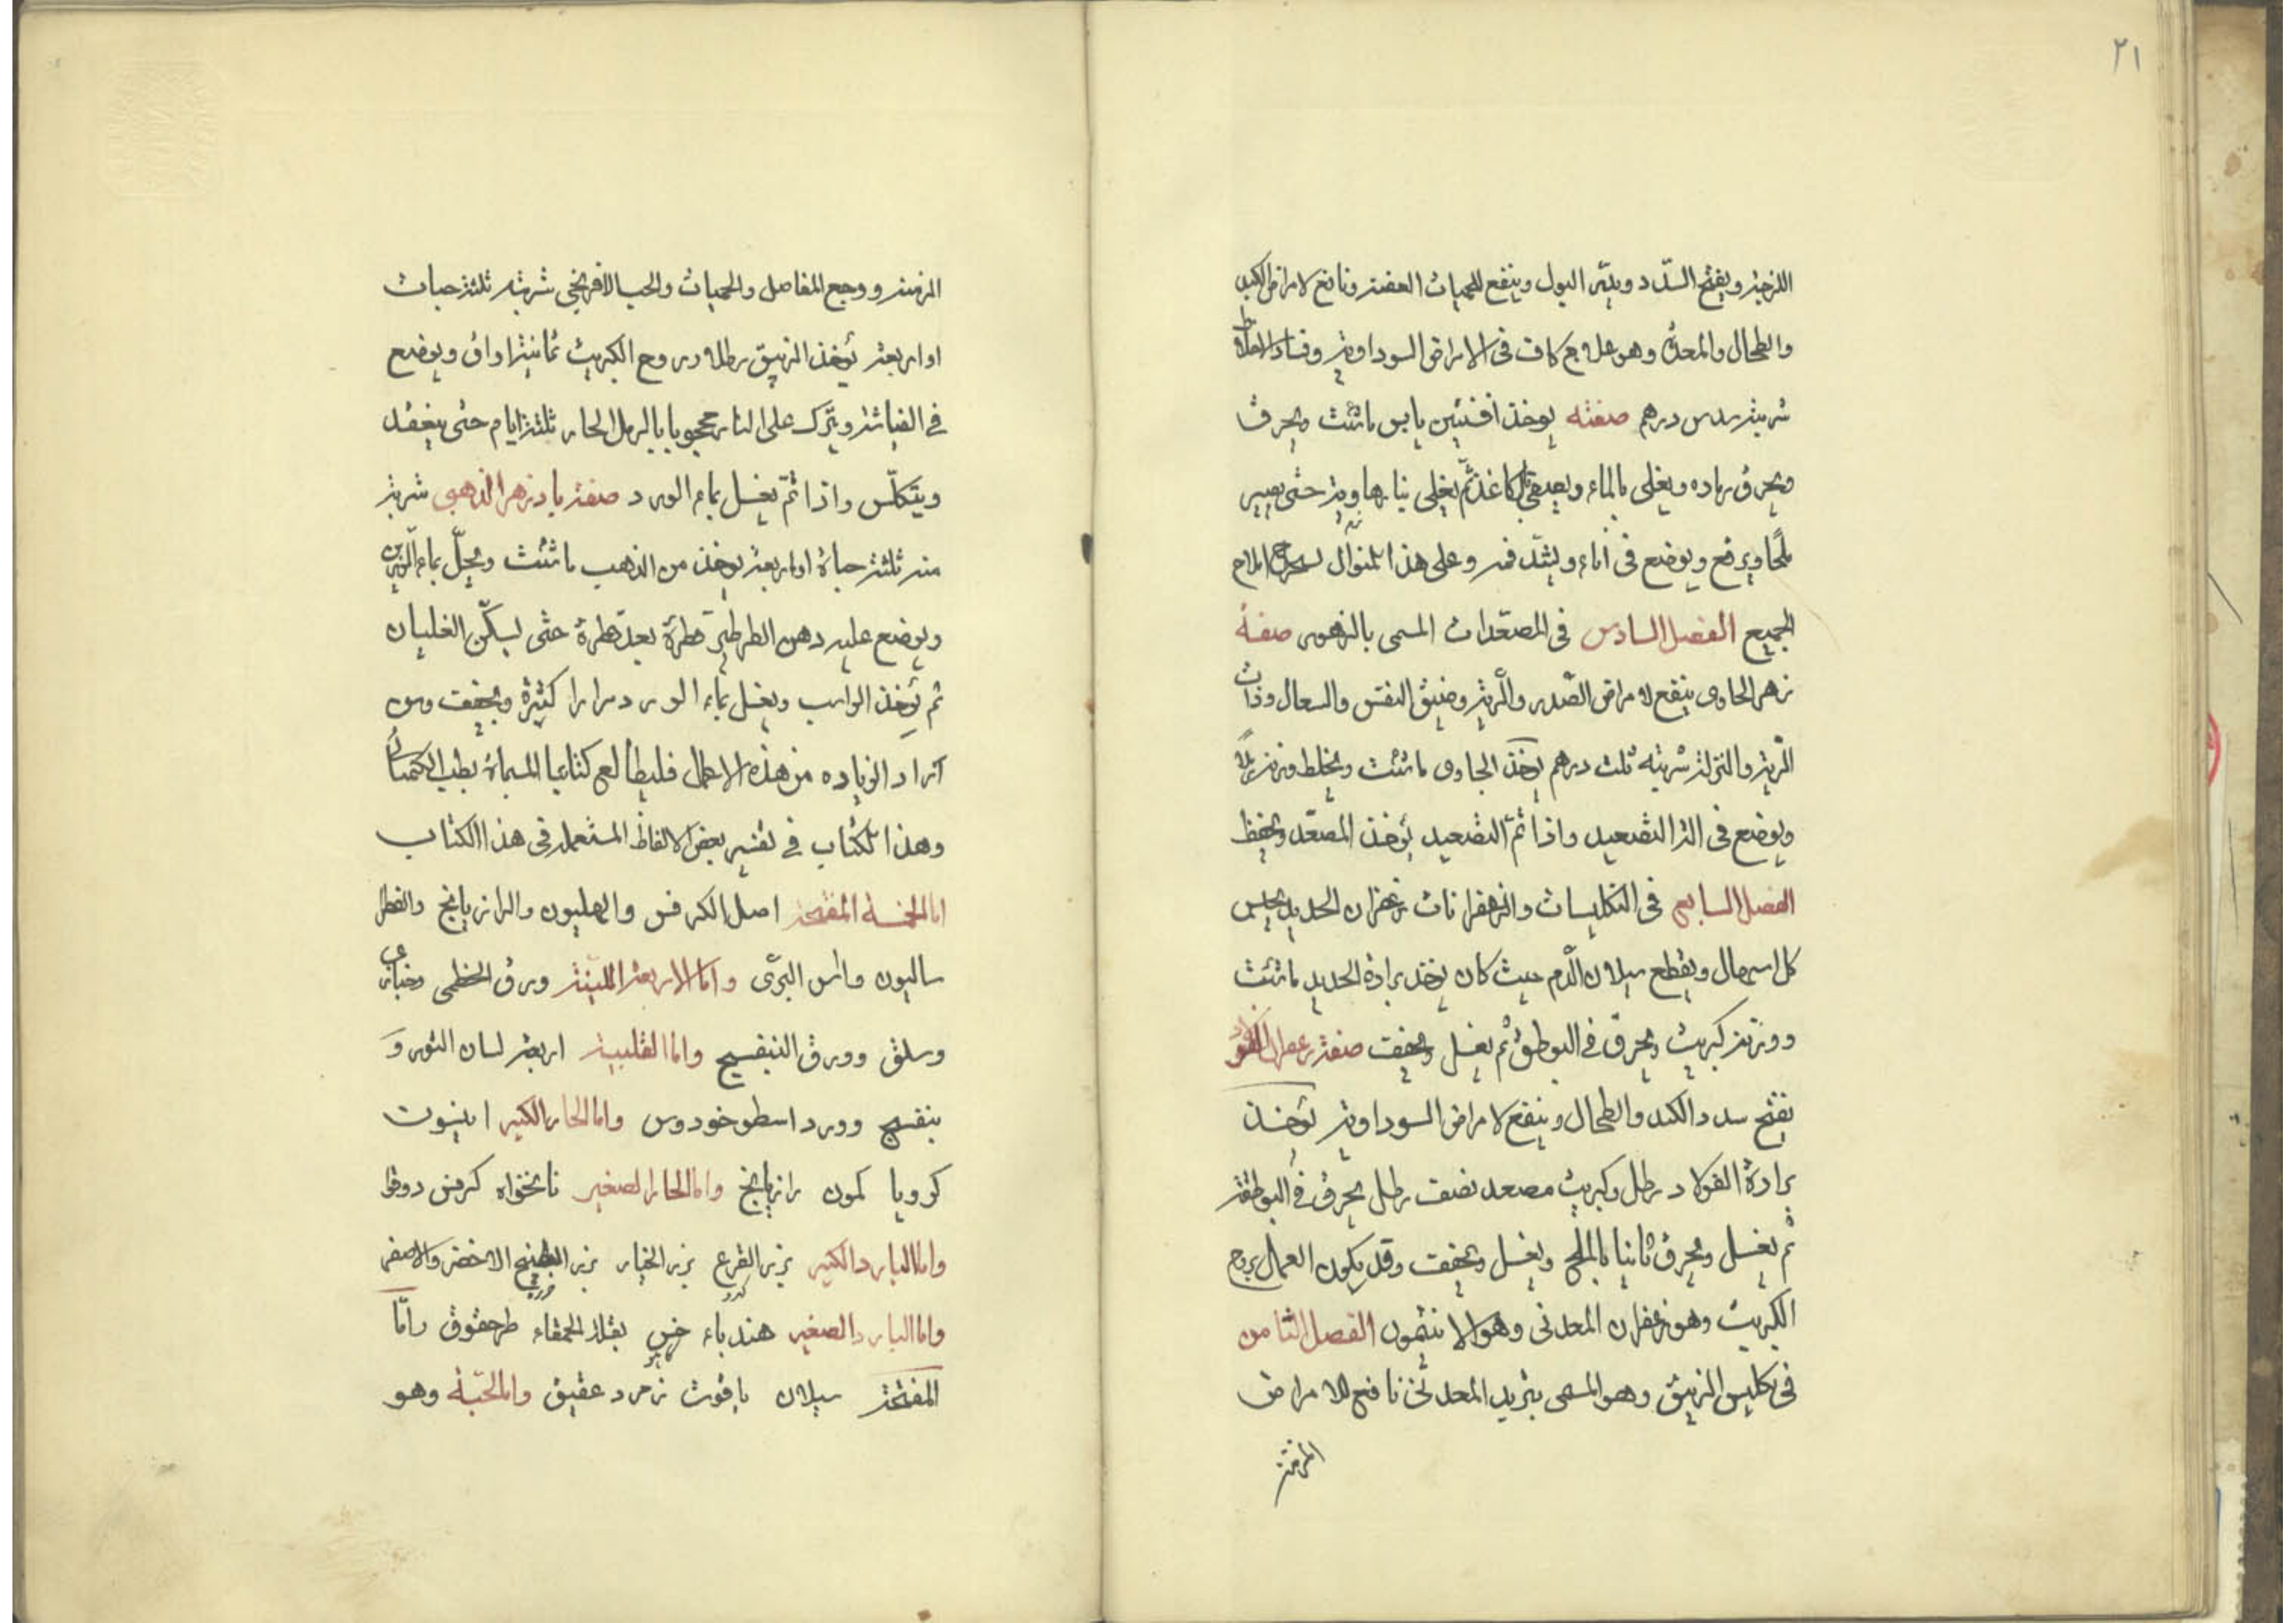 ٢١
اللزجة ويفتح السّدد ويدرّ البول وينفع للحميات العفنة ونافع لامراض الكبد
والطحال والمعدة وهو علاج كاف في الامراض السوداوية وفساد الاخلاط
شربته سدس درهم صفته يوخذ افسنتين يابس ما شئت ويحرق
ويحرق رماده ويغلى بالماء ويصفى بالكاغذ ثمّ يغلى نيا بهاوية حتى يصير
ملحًا ويرفع ويوضع في اناء ويشدّ فمه وعلى هذا المنوال يستخرج املاح
الجميع الفصل السادس في المصعّدات المسمى بالزهور صفة
زهر الجاوى ينفع لامراض الصّدر والرّية وضيق النفس والسعال وذات
الرّية والنزلة شربته ثلث درهم يوخذ الجاوى ما شئت ويخلط وزنه رملًا
ويوضع في الة التصعيد واذا تمّ التصعيد يؤخذ المصعّد ويحفظ
الفصل السابع في التكليسات والزعفرانات زعفران الحديد يحبس
كل اسهال ويقطع سيلان الّدم حيث كان يوخذ برادة الحديد ما شئت
ووزنه كبريت ويحرق في البوطقة ثم يغسل ويجفف صفة زعفران الفولاد
يفتح سدد الكبد والطحال وينفع لامراض السوداوية يؤخذ
برادة الفولاد رطل وكبريت مصعد نصف رطل يحرق في البوطقة
ثم يغسل ويحرق ثانيا بالملح ويغسل ويجفف وقد يكون العمل بروح
الكبريت وهو زعفران المعدنى وهو الانتمون الفصل الثامن
في تكليس الزيبق وهو المسمى بتربد المعدني نافع للامراض
المزمنة
المزمنة ووجع المفاصل والحميات والحب الافرنجي شربته ثلثة حبات
او اربعة يؤخذ الزيبق رطل وروح الكبريت ثمانية اواق ويوضع
في القياشة ويترك على النار محجوبا بالرمل الحار ثلثة ايام حتى ينعقد
ويتكلّس واذا تمّ يغسل بماء الورد صفة بادزهر الذهبى شربة
منه ثلثة حباة او اربعة يوخذ من الذهب ما شئت ويحلّ بماء الزرين
ويوضع عليه دهن الطرطير قطرة بعد قطرة حتى يسكّن الغليان
ثم يؤخذ الراسب ويغسل بماء الورد مرارا كثيرة ويجفف ومن
اراد الزياده من هذه الاعمال فليطالع كتابنا المسماة بطب الكيميائى
وهذا الكتاب في تفسير بعض الالفاظ المستعملة في هذا الكتاب
اما الخمسة المفتحة اصل الكرفس والهليون والرازيانج والفطر
ساليون واس البرّى واما الاربعة الملينة ورق الخطمى وخبازى
وسلق وورق البنفسج واما القلبية اربعة لسان الثور و
بنفسج وورد اسطوخودوس واما الحار الكبير انيسون
كرويا كمون رازيانج واما الحار الصغير نانخواه كرفس دوقوا
واما البارد الكبير بزر القرع بزر الخيار بزر البطيخ الاخضر والاصفر
واما البارد الصغير هندباء خس بقلة الحمقاء طرحقوق وامّا
المفتحة سيلان ياقوت زمرد عقيق واما الحبّة وهو